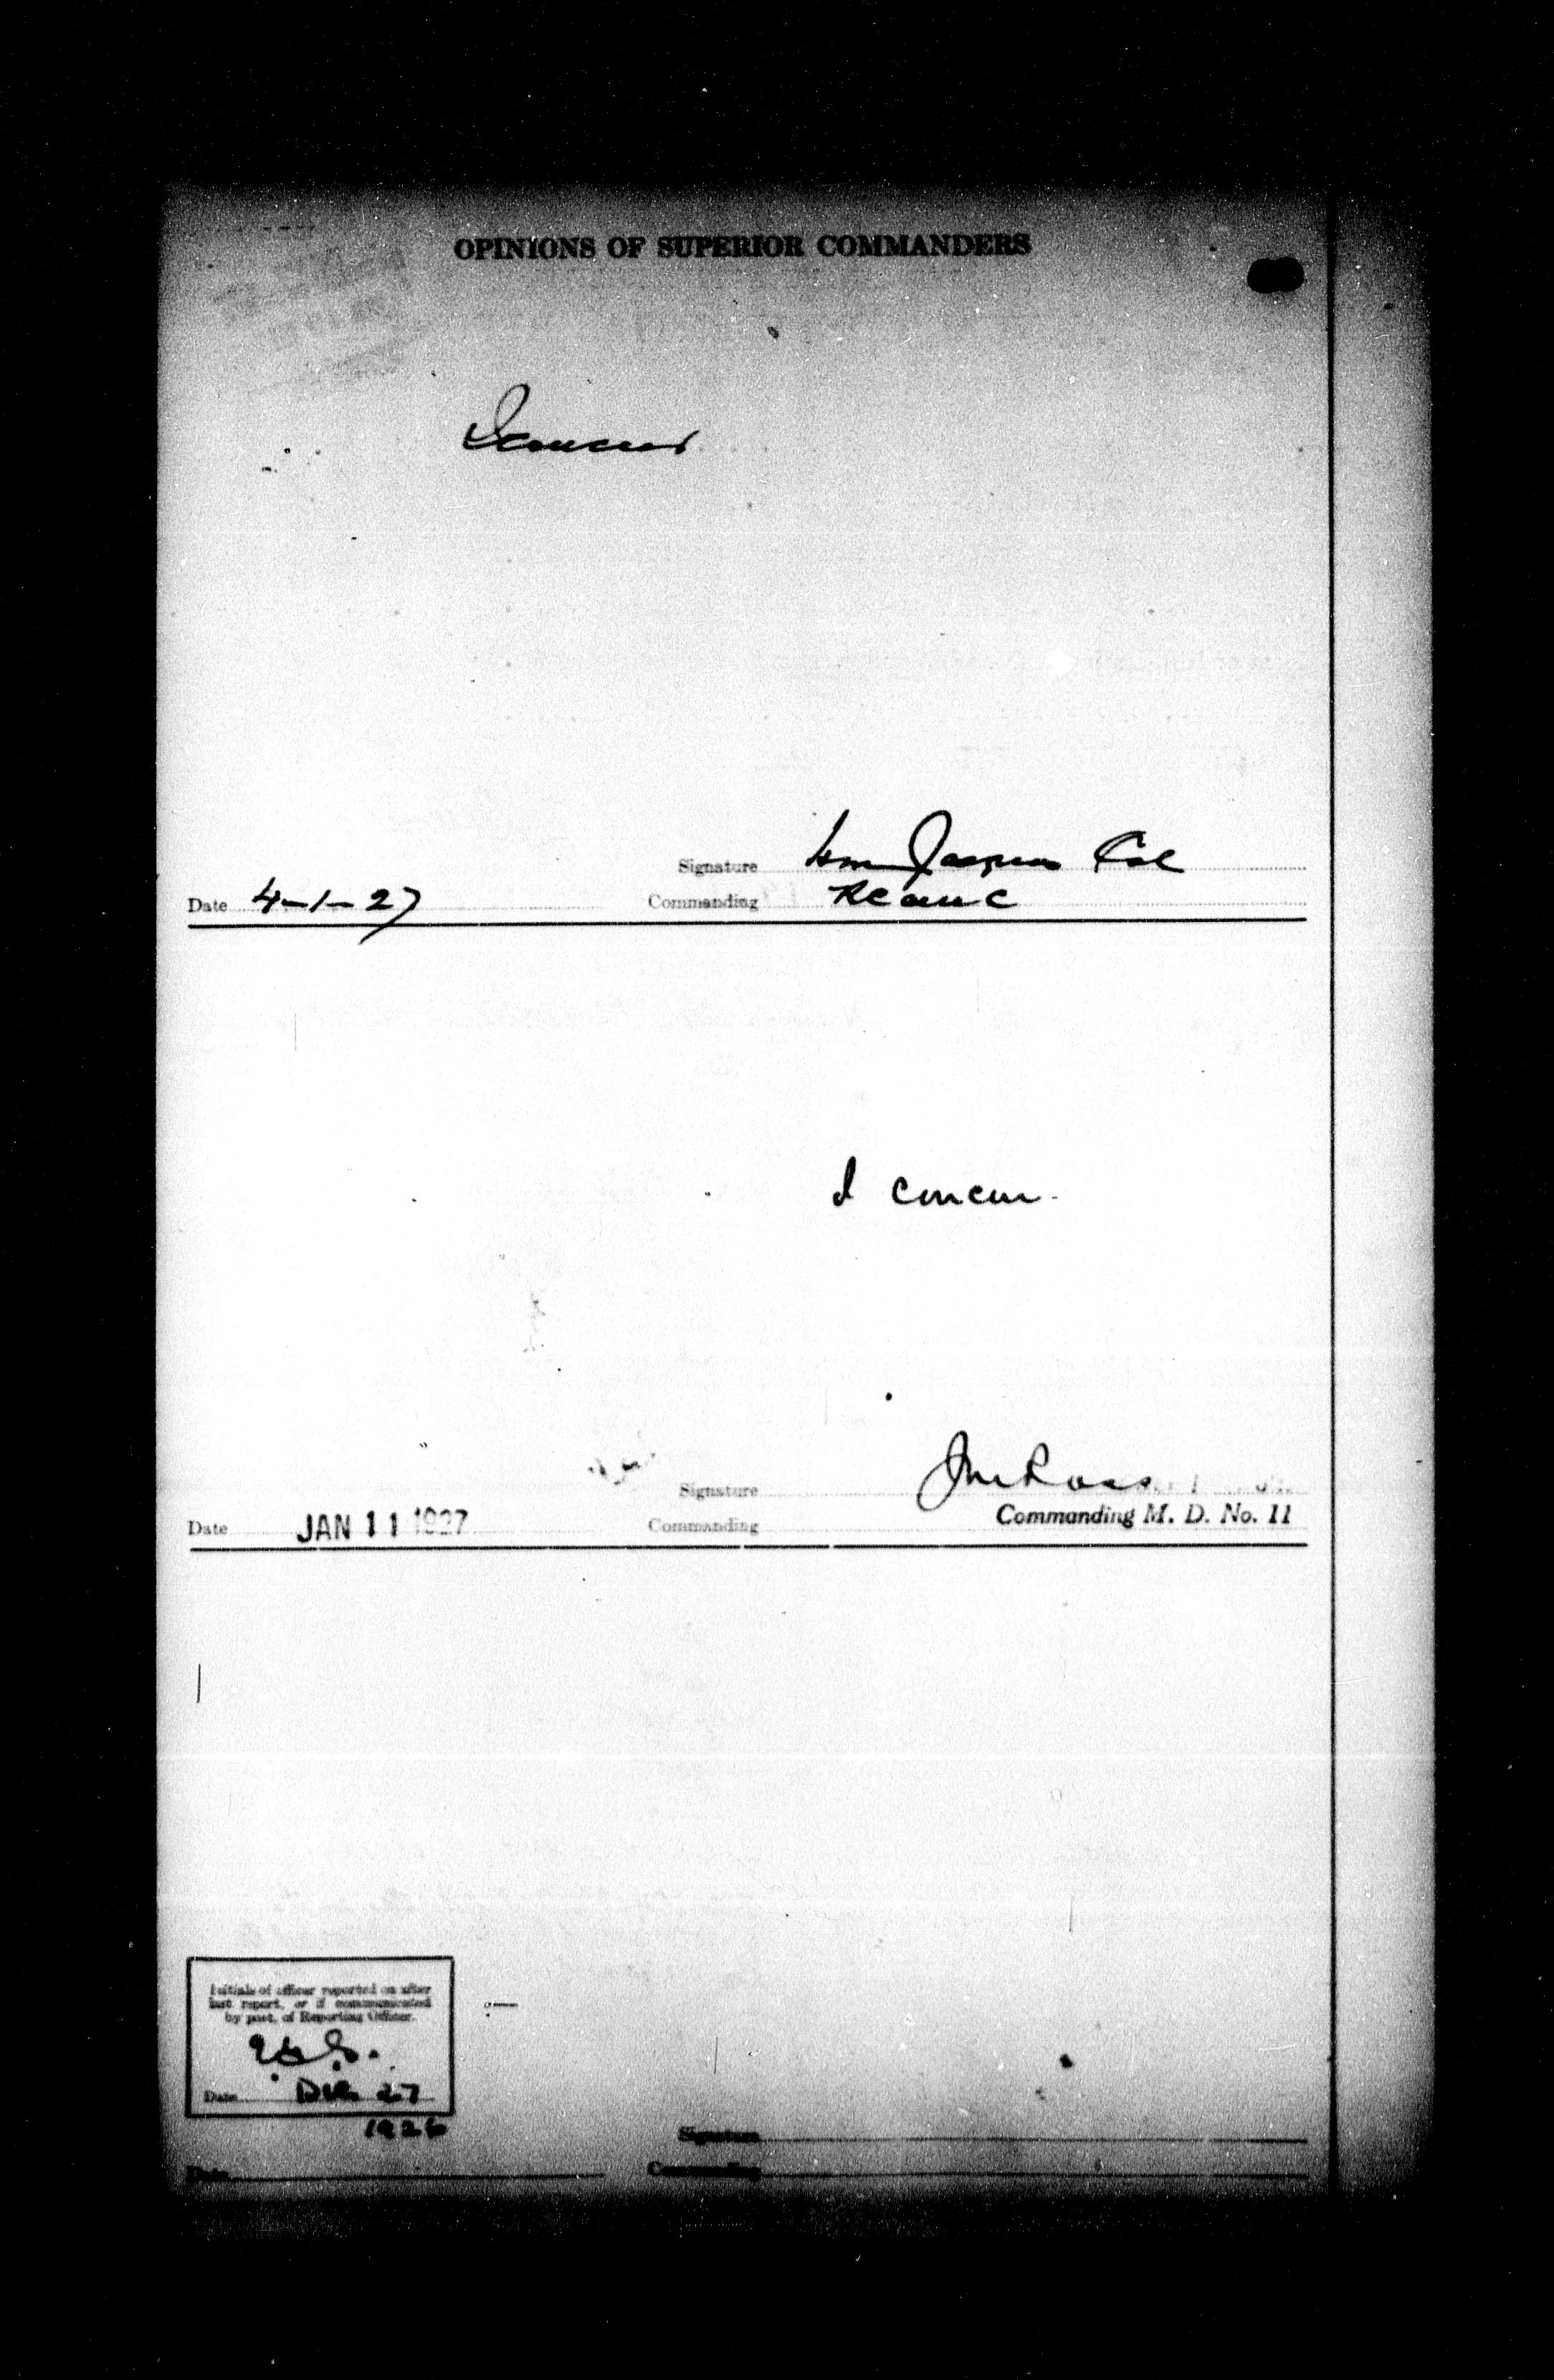 OPINIONS OF SUPERIOR COMMANDERS
I concur
Signature Col
Date 4-1-27 Commanding RCAMC
I concur.
Signature Ross
Date JAN 11 1927 Commanding Commanding M. D. No. 11
Initials of officer reported on after
last report, or if communicated
by post, of Reporting Officer.
Date Dec 27
1926
Signature
Date Commanding